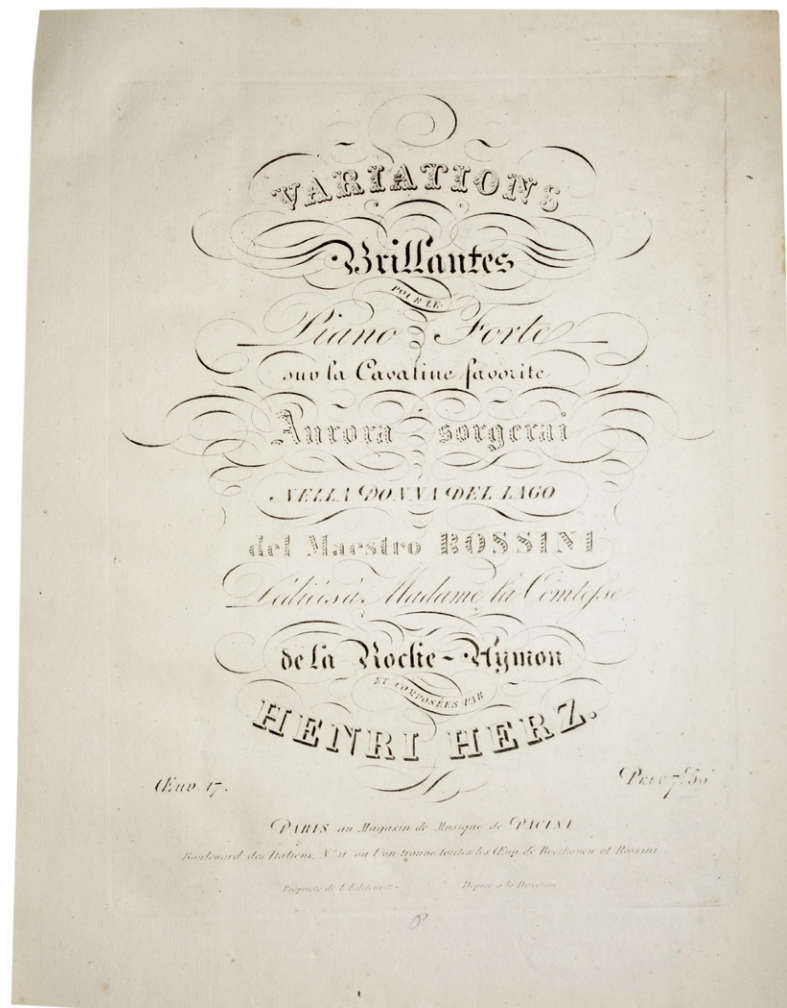 VARIATIONS
Brillantes
POUR LE
Piano Forte
sur la Cavatine favorite
Aurora sorgerai
NELLA DONNA DEL LAGO
del Maestro ROSSINI
Dédiées à Madame la Comtesse
de la Roche-Aymon
ET COMPOSÉES PAR
HENRI HERZ.
Œuv. 17.
Prix 7f. 50c
PARIS au Magasin de Musique de PACINI
Boulevard des Italiens, No. 11 où l'on trouve toutes les Œuv. de Beethoven et Rossini
Propriété de l'Editeur
Déposé à la Direction